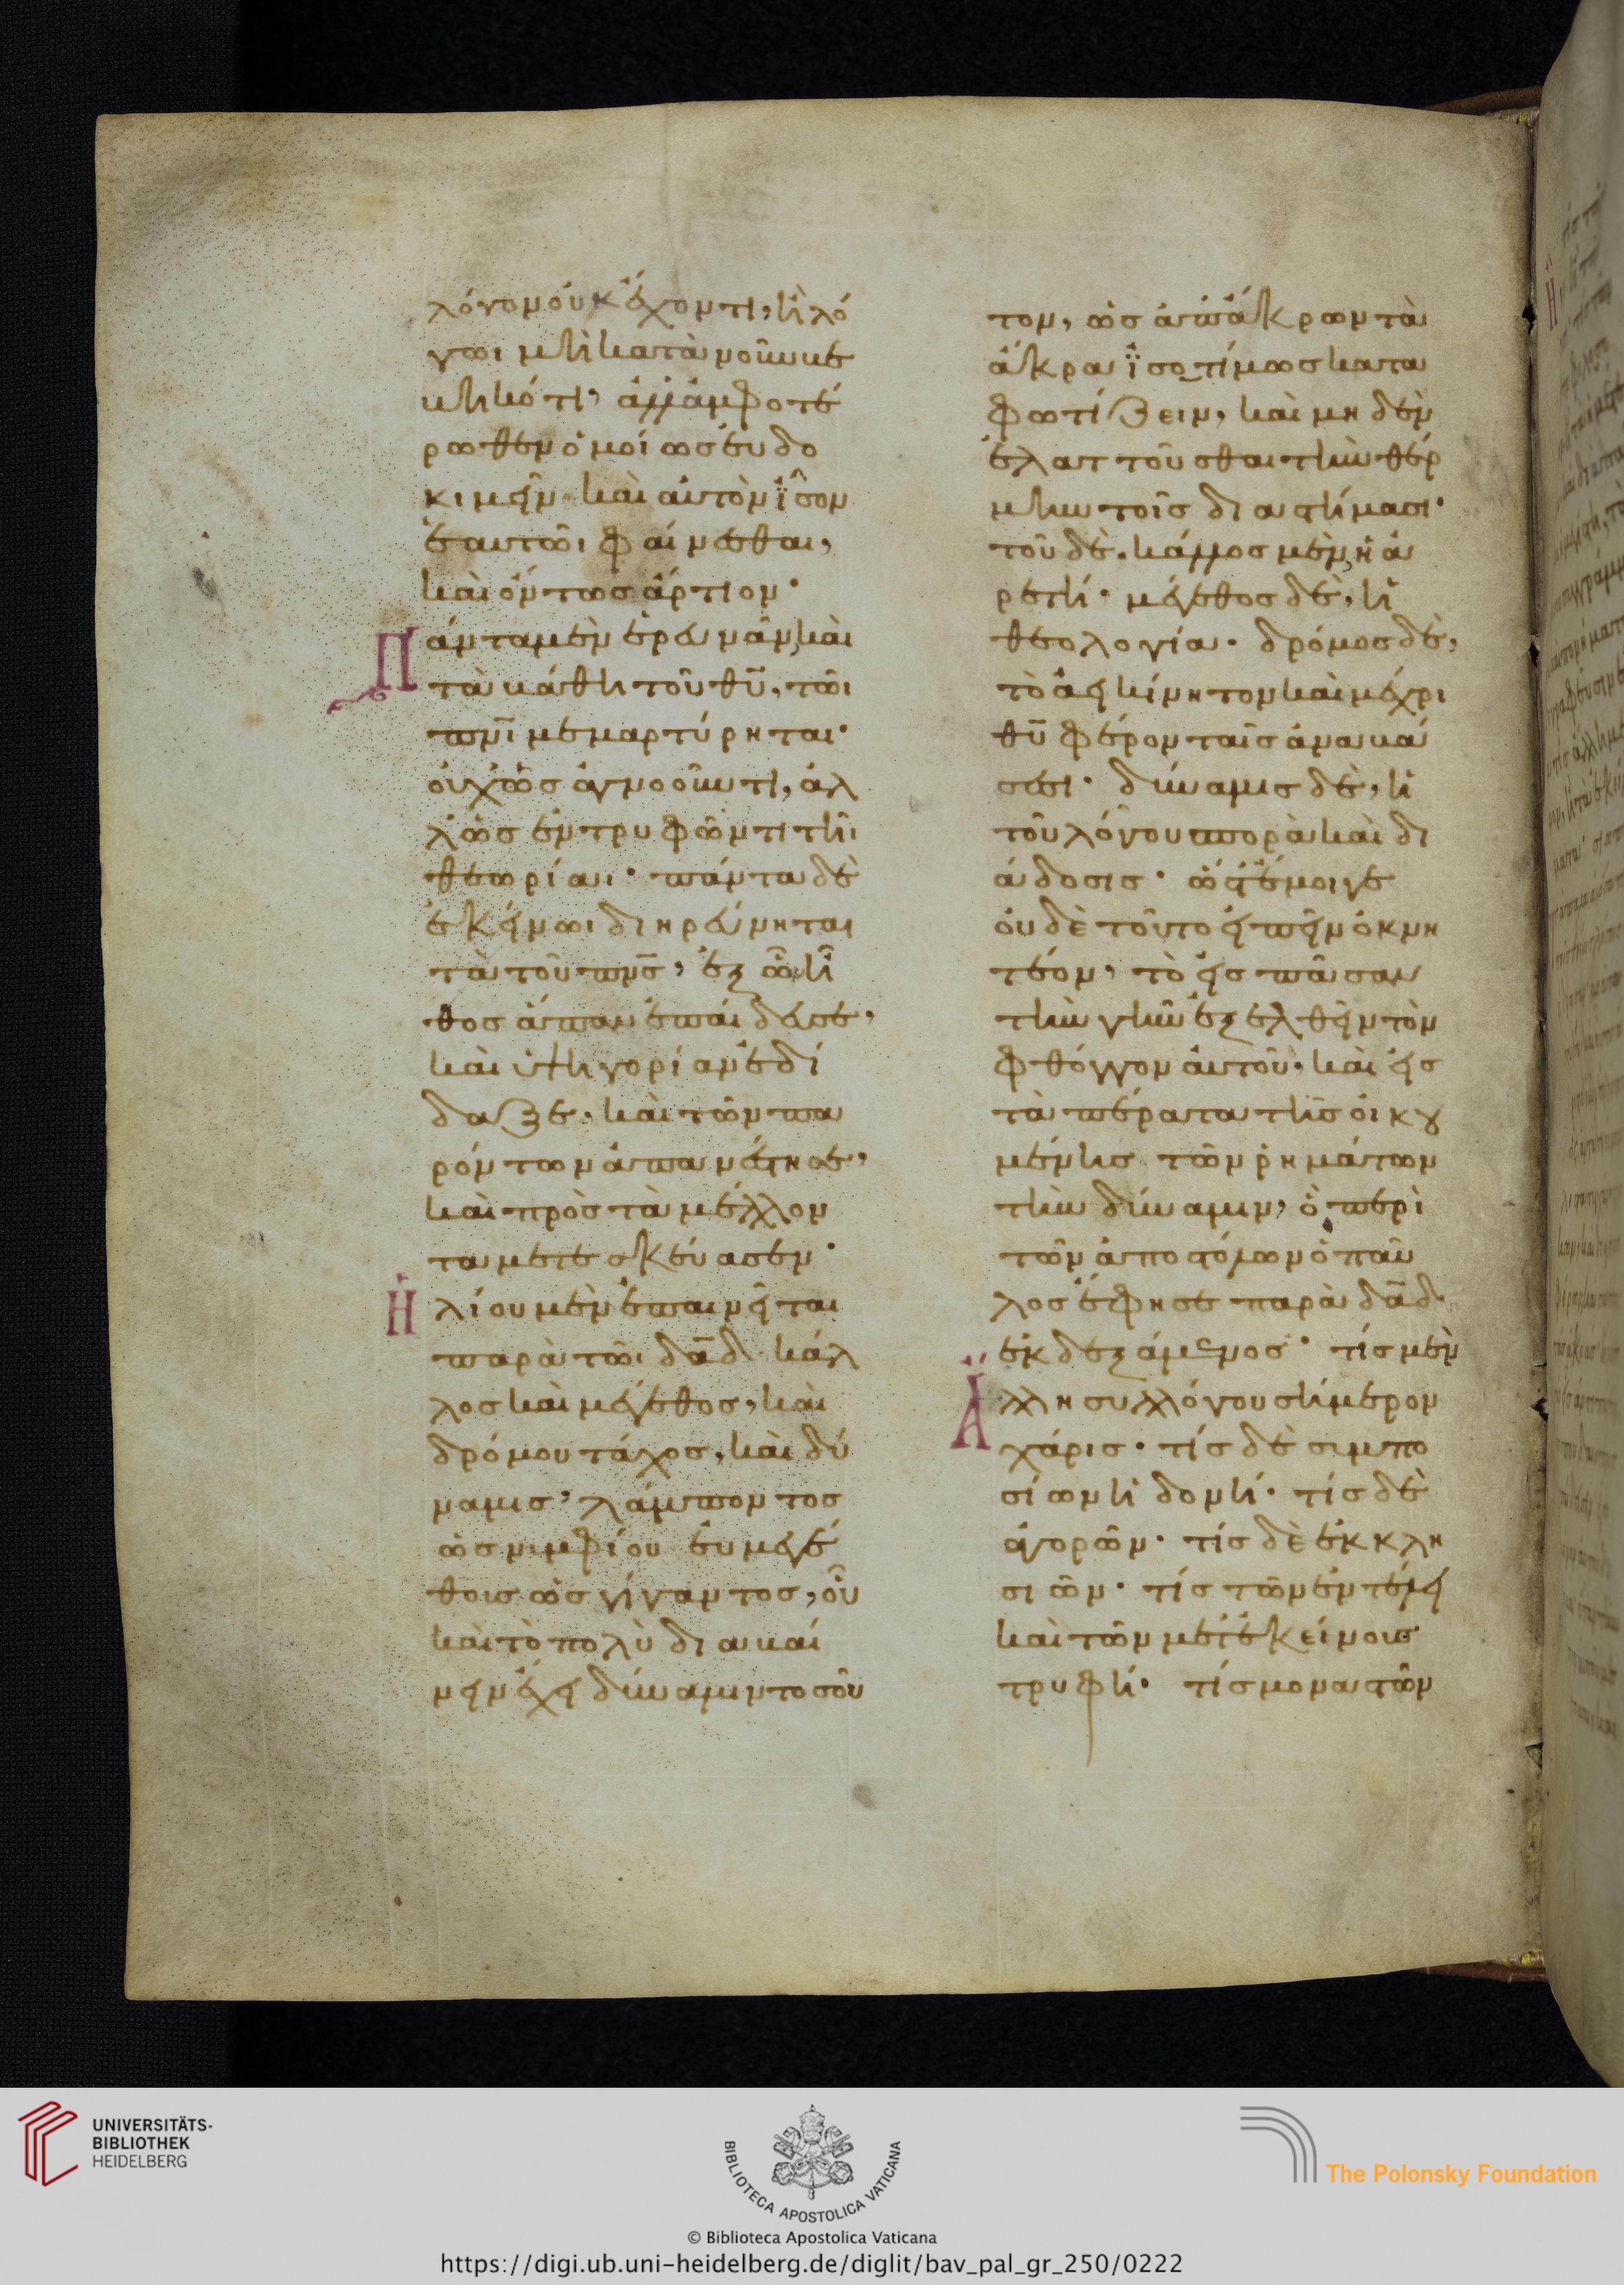 λόγον οὐκ ἔχοντι, ἢ λό
γωι μὴ κατὰ νοῦν κε
κληκότι, ἀλλ' ἀμφοτέ
ρωθεν ὁμοίως εὐδο
κιμεῖν καὶ αὐτὸν ἴσον
ἑαυτῶι φαίνεσθαι,
καὶ οὕτως ἄρτιον·
Πάντα μὲν ἐρευνᾶν, καὶ
τὰ βάθη τοῦ θῦ, τῶι
πνῖ μεμαρτύρηται·
οὐχ ὡς ἀγνοοῦντι, ἀλ
λ' ὡς ἐντρυφῶντι τῆι
θεωρίαι· πάντα δὲ
ἐκείνωι διηρεύνηται
τὰ τοῦ πνς, ἐξ ὧν ἦ
θος ἅπαν ἐπαίδευσε,
καὶ δημηγορίαν ἐδί
δαξε, καὶ τῶν πα
ρόντων ἀπανέστησε,
καὶ πρὸς τὰ μέλλον
τα μετεσκεύασεν·
Ἡλίου μὲν ἐπαινεῖται
παρὰ τῶι δαδ κάλ
λος καὶ μέγεθος, καὶ
δρόμου τάχος, καὶ δύ
ναμις, λάμποντος
ὡς νυμφίου εὐμεγέ
θους ὡς γίγαντος, οὗ
καὶ τὸ πολὺ διαβαί
νειν ἔχει δύναμιν τοσοῦ
τον, ὡς ἀπ' ἄκρων τὰ
ἄκρα ἰσοτίμως κατα
φωτίζειν, καὶ μηδὲν
ἐλαττοῦσθαι τὴν θέρ
μην τοῖς διαστήμασι·
τοῦ δὲ, κάλλος μὲν, ἡ ἀ
ρετή· μέγεθος δὲ, ἡ
θεολογία· δρόμος δὲ,
τὸ ἀεικίνητον καὶ μέχρι
θῦ φέρον ταῖς ἀναβά
σεσι· δύναμις δὲ, ἡ
τοῦ λόγου σπορὰ καὶ δι
άδοσις· ὥστ' ἔμοιγε
οὐδὲ τοῦτο εἰπεῖν ὀκνη
τέον, τὸ εἰς πᾶσαν
τὴν γῆν ἐξελθεῖν τὸν
φθόγγον αὐτοῦ· καὶ εἰς
τὰ πέρατα τῆς οἰκου
μένης τῶν ῥημάτων
τὴν δύναμιν, ὃ περὶ
τῶν ἀποστόλων ὁ παῦ
λος ἔφησε παρὰ δαδ
ἐκδεξάμενος· τίς μὲν
Ἄλλη συλλόγου σήμερον
χάρις· τίς δὲ συμπο
σίων ἡδονή· τίς δὲ
ἀγορῶν· τίς δὲ ἐκκλη
σιῶν· τίς τῶν ἐν τέλει
καὶ τῶν μετ' ἐκείνους
τρυφή· τίς μοναστῶν
UNIVERSITÄTS-
BIBLIOTHEK
HEIDELBERG
BIBLIOTECA APOSTOLICA VATICANA
The Polonsky Foundation
© Biblioteca Apostolica Vaticana
https://digi.ub.uni-heidelberg.de/diglit/bav_pal_gr_250/0222